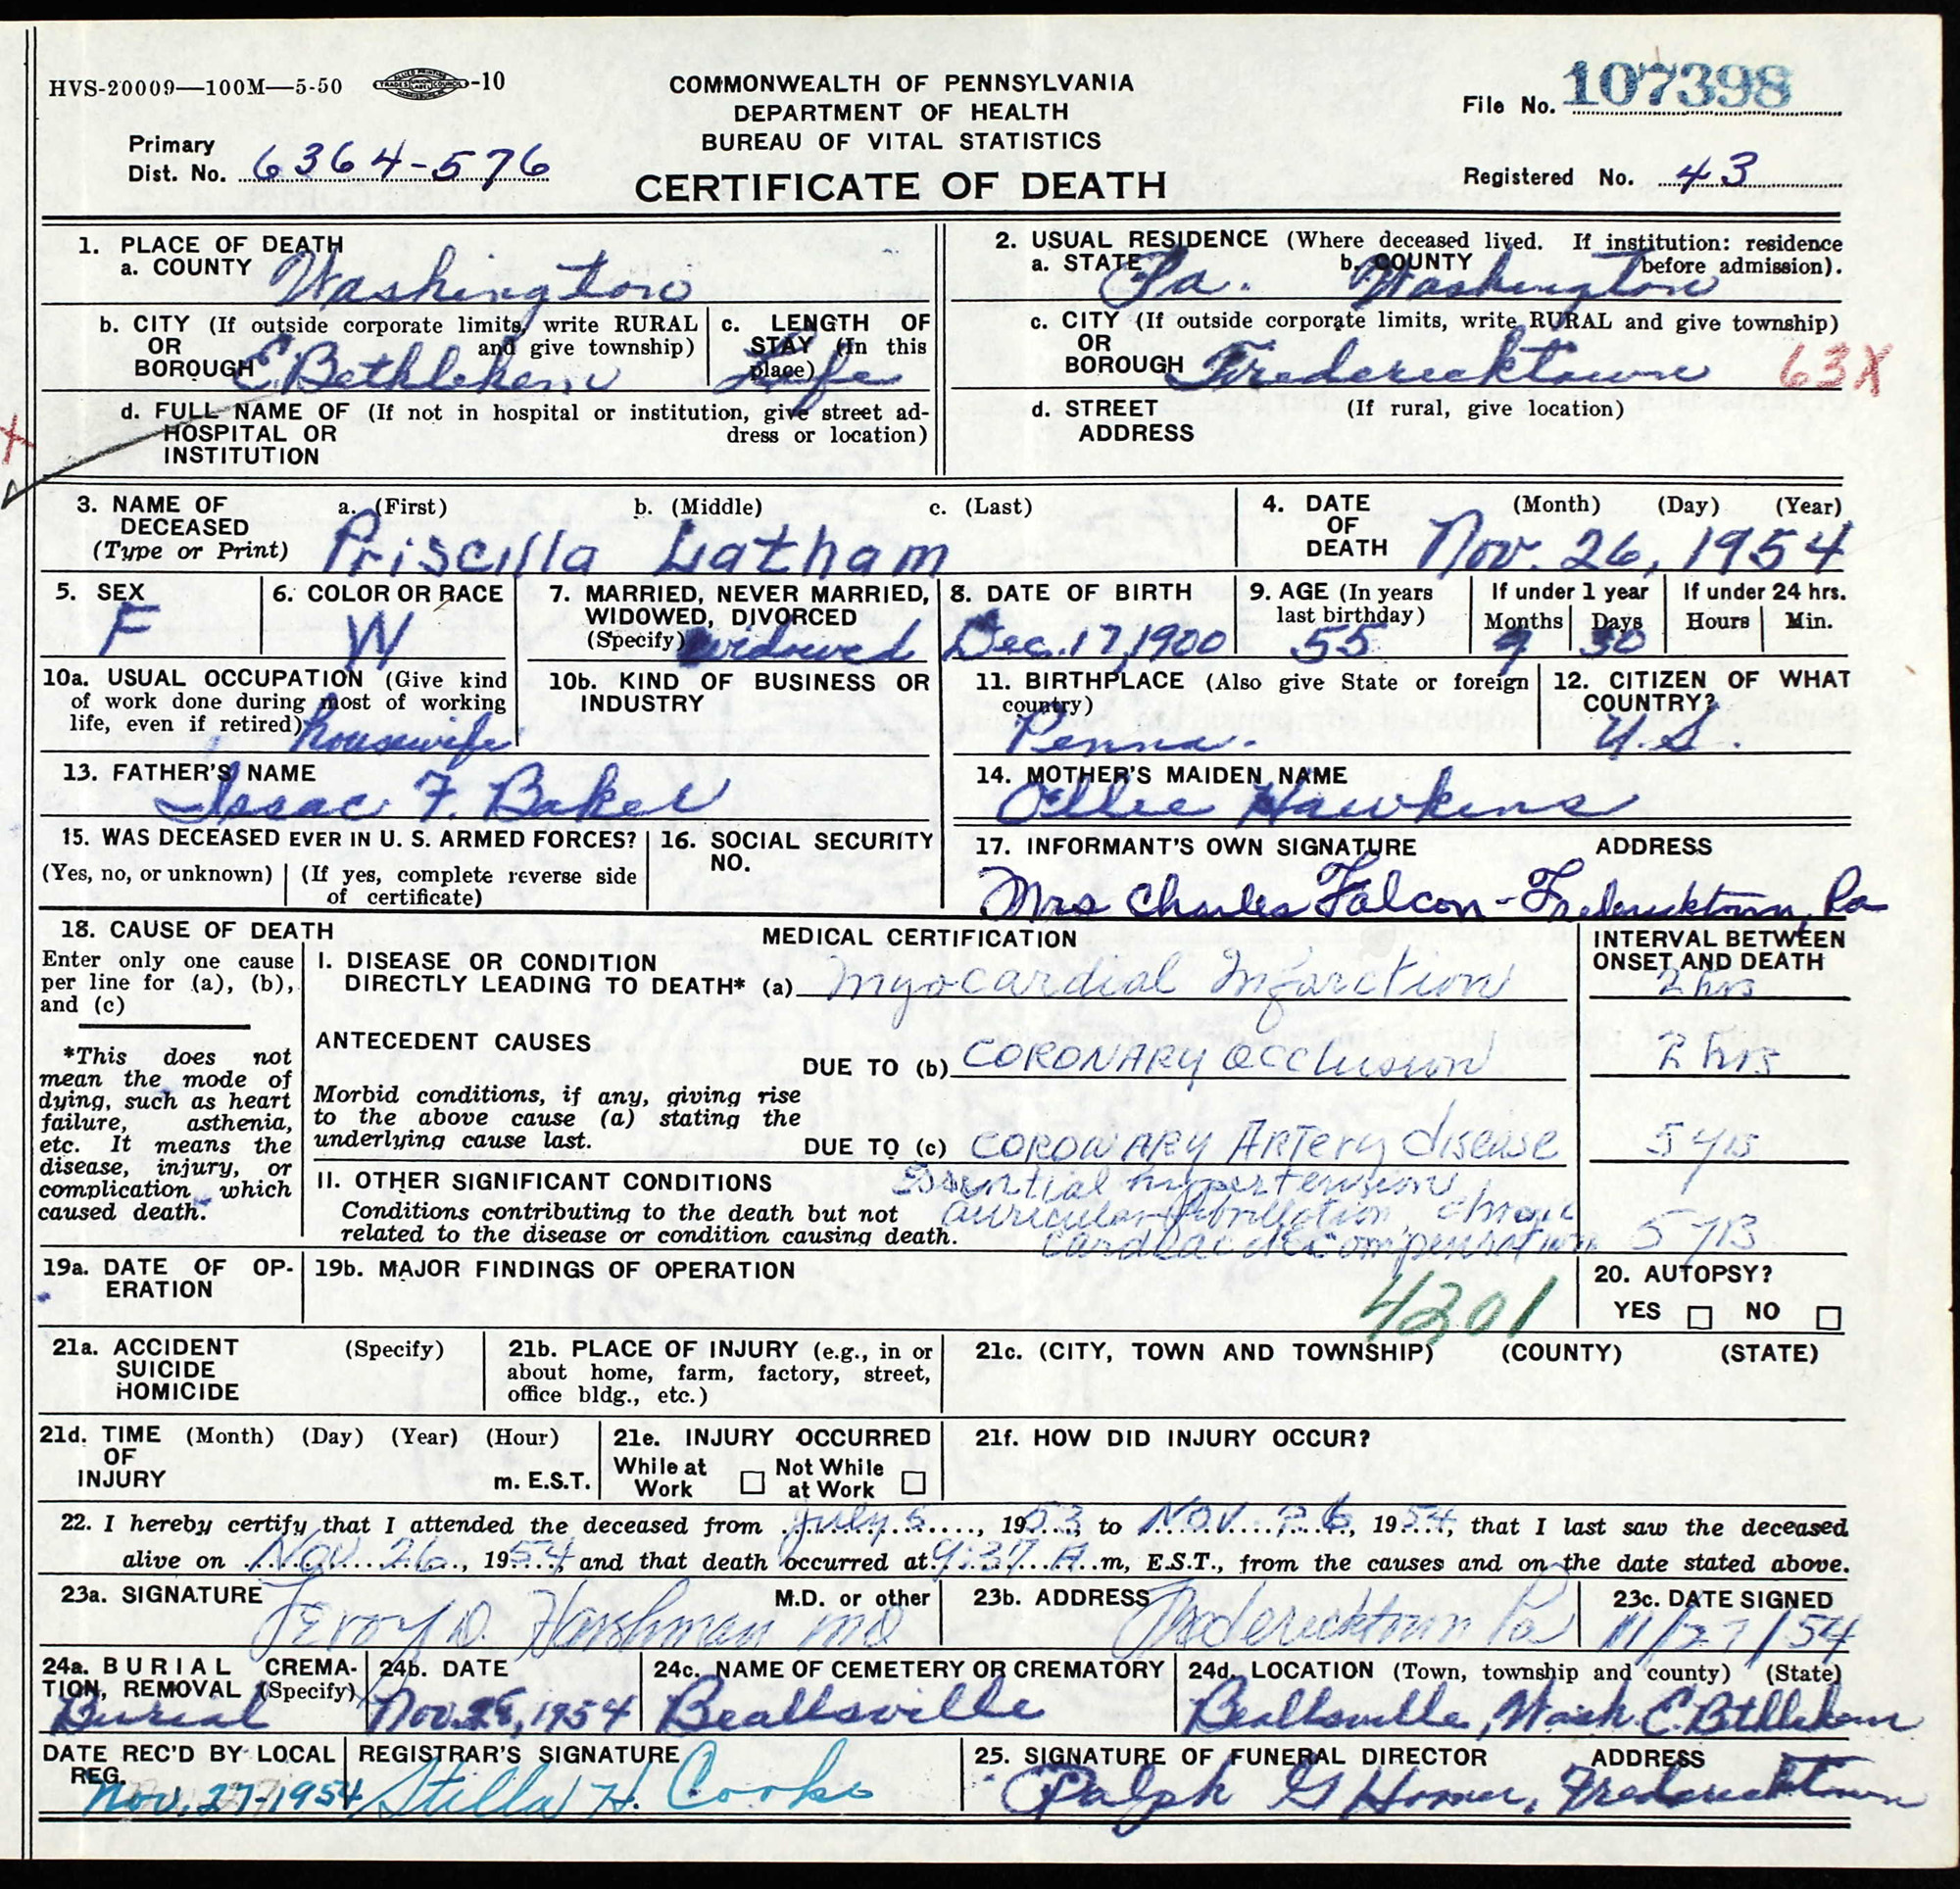 HVS-20009—100M—5-50 -10
COMMONWEALTH OF PENNSYLVANIA
DEPARTMENT OF HEALTH
BUREAU OF VITAL STATISTICS
CERTIFICATE OF DEATH
File No. 107398
Primary
Dist. No. 6364-576
Registered No. 43
1. PLACE OF DEATH
a. COUNTY Washington
b. CITY (If outside corporate limits, write RURAL
OR and give township)
BOROUGH E. Bethlehem
c. LENGTH OF
STAY (In this
place) Life
d. FULL NAME OF (If not in hospital or institution, give street ad-
HOSPITAL OR dress or location)
INSTITUTION
2. USUAL RESIDENCE (Where deceased lived. If institution: residence
a. STATE b. COUNTY before admission).
Pa. Washington
c. CITY (If outside corporate limits, write RURAL and give township)
OR
BOROUGH Fredericktown 63X
d. STREET (If rural, give location)
ADDRESS
3. NAME OF a. (First) b. (Middle) c. (Last)
DECEASED
(Type or Print) Priscilla Latham
4. DATE (Month) (Day) (Year)
OF
DEATH Nov. 26, 1954
5. SEX
F
6. COLOR OR RACE
W
7. MARRIED, NEVER MARRIED,
WIDOWED, DIVORCED
(Specify) widowed
8. DATE OF BIRTH
Dec. 17, 1900
9. AGE (In years
last birthday)
55
If under 1 year
Months Days
9 30
If under 24 hrs.
Hours Min.
10a. USUAL OCCUPATION (Give kind
of work done during most of working
life, even if retired) housewife
10b. KIND OF BUSINESS OR
INDUSTRY
11. BIRTHPLACE (Also give State or foreign
country)
Penna.
12. CITIZEN OF WHAT
COUNTRY?
U.S.
13. FATHER'S NAME
Issac F. Baker
14. MOTHER'S MAIDEN NAME
Ollie Hawkins
15. WAS DECEASED EVER IN U. S. ARMED FORCES?
(Yes, no, or unknown) (If yes, complete reverse side
of certificate)
16. SOCIAL SECURITY
NO.
17. INFORMANT'S OWN SIGNATURE ADDRESS
Mrs Charles Falcon - Fredericktown, Pa
18. CAUSE OF DEATH
Enter only one cause
per line for (a), (b),
and (c)
*This does not
mean the mode of
dying, such as heart
failure, asthenia,
etc. It means the
disease, injury, or
complication which
caused death.
MEDICAL CERTIFICATION
INTERVAL BETWEEN
ONSET AND DEATH
I. DISEASE OR CONDITION
DIRECTLY LEADING TO DEATH* (a) Myocardial Infarction 2 hrs
ANTECEDENT CAUSES
DUE TO (b) CORONARY Occlusion 2 hrs
Morbid conditions, if any, giving rise
to the above cause (a) stating the
underlying cause last.
DUE TO (c) CORONARY Artery disease 5 yrs
II. OTHER SIGNIFICANT CONDITIONS Essential hypertension
Conditions contributing to the death but not auricular fibrillation, chronic
related to the disease or condition causing death. cardiac decompensation 5 yrs
19a. DATE OF OP-
ERATION
19b. MAJOR FINDINGS OF OPERATION
4201
20. AUTOPSY?
YES NO
21a. ACCIDENT (Specify)
SUICIDE
HOMICIDE
21b. PLACE OF INJURY (e.g., in or
about home, farm, factory, street,
office bldg., etc.)
21c. (CITY, TOWN AND TOWNSHIP) (COUNTY) (STATE)
21d. TIME (Month) (Day) (Year) (Hour)
OF
INJURY m. E.S.T.
21e. INJURY OCCURRED
While at Not While
Work at Work
21f. HOW DID INJURY OCCUR?
22. I hereby certify that I attended the deceased from July 5, 1953, to Nov. 26, 1954, that I last saw the deceased
alive on Nov 26, 1954, and that death occurred at 9:37 A.m, E.S.T., from the causes and on the date stated above.
23a. SIGNATURE M.D. or other
Leroy D. Harshman MD
23b. ADDRESS
Fredericktown Pa
23c. DATE SIGNED
11/27/54
24a. BURIAL CREMA-
TION, REMOVAL (Specify)
Burial
24b. DATE
Nov. 1954
24c. NAME OF CEMETERY OR CREMATORY
Beallsville
24d. LOCATION (Town, township and county) (State)
Beallsville, Wash. E. Bethlehem
DATE REC'D BY LOCAL
REG.
Nov. 27-1954
REGISTRAR'S SIGNATURE
Stilla H. Cooke
25. SIGNATURE OF FUNERAL DIRECTOR ADDRESS
Ralph G Horner, Fredericktown